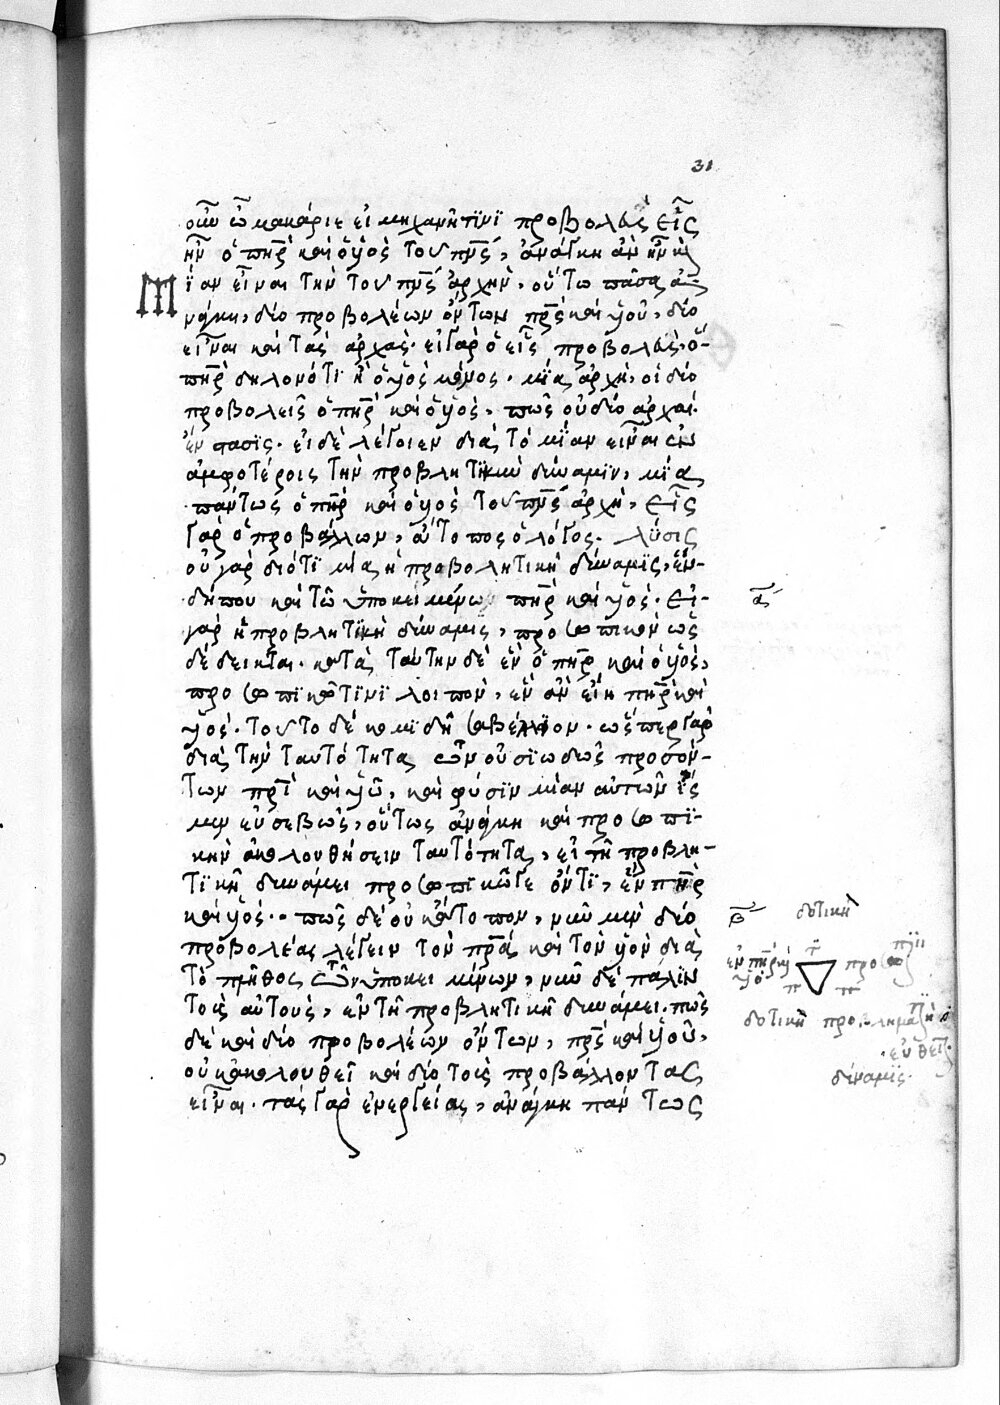 31
οὖν ὦ μακάριε εἰ μηχανῆ τινὶ προβολεὺς εἷς
ἦν ὁ πηρ καὶ ὁ υἱὸς τοῦ πνς, ἀνάγκη ἂν ἦν κ
μίαν εἶναι τὴν τοῦ πνς ἀρχὴν. οὕτω πᾶσα ἀ-
νάγκη, δύο προβολέων ὄντων πρς καὶ υἱοῦ, δύο
εἶναι καὶ τὰς ἀρχάς. εἰ γὰρ ὁ εἷς προβολεὺς, ὁ
πηρ δηλονότι ἢ ὁ υἱὸς μόνος. μία ἀρχὴ, οἱ δύο
προβολεῖς ὁ πηρ καὶ ὁ υἱὸς, πῶς οὐ δύο ἀρχαί.
ἔνστασις. εἰ δὲ λέγοιεν διὰ τὸ μίαν εἶναι ἐν
ἀμφοτέροις τὴν προβλητικὴν δύναμιν, μία
πάντως ὁ πηρ καὶ ὁ υἱὸς τοῦ πνς ἀρχὴ, εἷς
γὰρ ὁ προβάλλων, ἄτοπος ὁ λόγος. λύσις
οὐ γὰρ διότι μία ἡ προβολητικὴ δύναμις, ἓν
δήπου καὶ τῶ ὑποκειμένω πηρ καὶ υἱός. εἰ
γὰρ ἡ προβλητικὴ δύναμις, προσωπικὸν ὡς
δέδεικται. κατὰ ταύτην δὲ ἓν ὁ πηρ καὶ ὁ υἱὸς,
προσωπικῶ τινὶ λοιπὸν, ἓν ἂν εἴη πηρ καὶ
υἱός. τοῦτο δὲ κομιδῆ σαβέλλιον. ὥσπερ γὰρ
διὰ τὴν ταυτότητα τῶν οὐσιωδῶς προσόν-
των πρὶ καὶ υἱῶ, καὶ φύσιν μίαν αὐτῶν ἴσ
μεν εὐσεβῶς, οὕτως ἀνάγκη καὶ προσωπι-
κὴν ἀκολουθήσειν ταυτότητα, εἰ τῆ προβλη-
τικῆ δυνάμει προσωπικῶ γε ὄντι, ἓν πηρ
καὶ υἱός. πῶς δὲ οὐκ ἄτοπον, νῦν μὲν δύο
προβολέας λέγειν τὸν πρα καὶ τὸν υἱὸν διὰ
τὸ πλῆθος τῶν ὑποκειμένων, νῦν δὲ πάλιν
τοὺς αὐτοὺς, ἓν τῆ προβλητικῆ δυνάμει. πῶς
δὲ καὶ δύο προβολέων ὄντων, πρς καὶ υἱοῦ,
οὐκ ἀκολουθεῖ καὶ δύο τοὺς προβάλλοντας
εἶναι. τὰς γὰρ ἐνεργείας, ἀνάγκη πάντως
α
β
δοτικὴ
ἓν πηρ κ
υἱὸς
δοτικὴ
δύναμις.